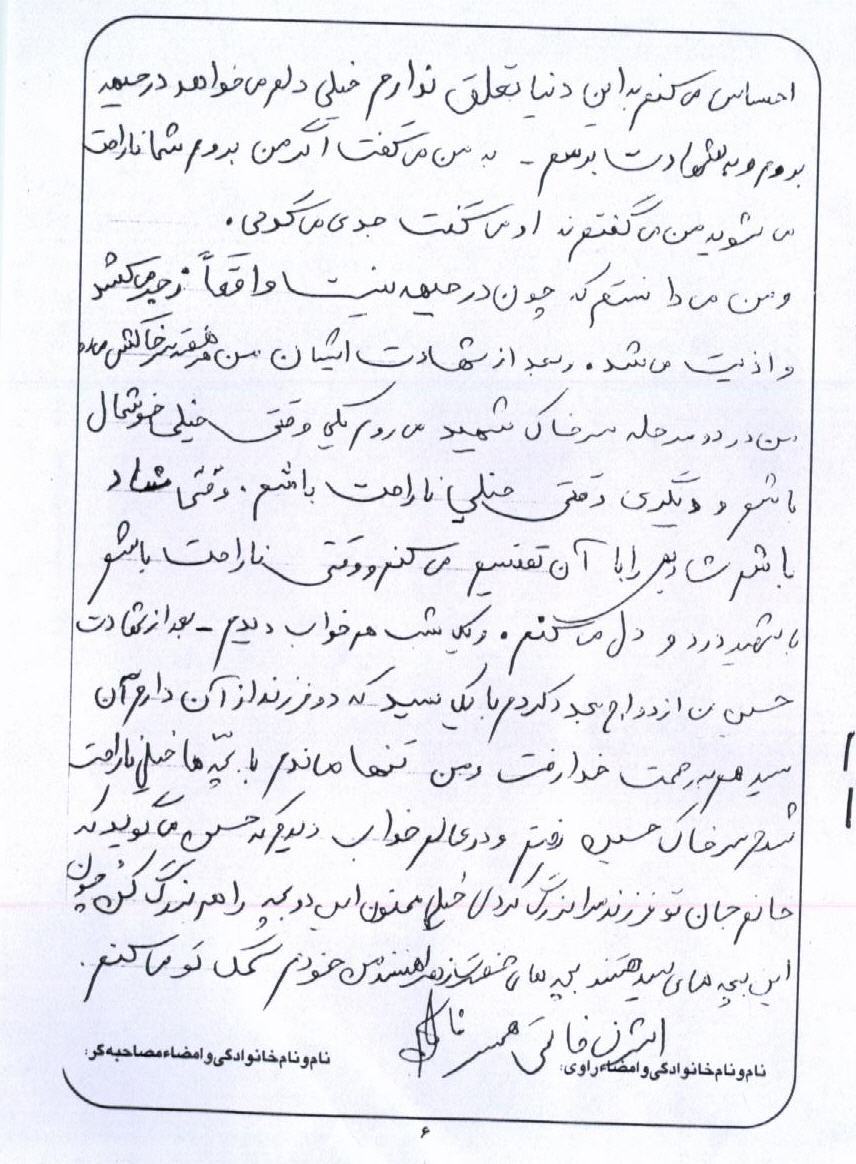 احساس می کنم به این دنیا تعلق ندارم خیلی دلم می خواهد در جبهه
بروم و به شهادت برسم - به من می گفت اگر من بروم شما ناراحت
می شوید من می گفتم نه او می گفت جدی می گوئی.
و من می دانستم که چون در جبهه نیست واقعاً زجر می کشد
و اذیت می شد. و بعد از شهادت ایشان من هر هفته سر خاکش می روم
من در دو مرحله سر خاک شهید می روم یکی وقتی خیلی خوشحال
باشم و دیگری وقتی خیلی ناراحت باشم. وقتی شاد
باشم شادیم را با آن تقسیم می کنم و وقتی ناراحت باشم
با شهید درد و دل می کنم. و یک شب هم خواب دیدم - بعد از شهادت
حسین من ازدواج مجدد کردم با یک سید که دو فرزند از آن دارم آن
سید هم به رحمت خدا رفت و من تنها ماندم با بچّه ها خیلی ناراحت
شدم سر خاک حسین رفتم و در عالم خواب دیدم که حسین می گوید که
خانم جان تو فرزند مرا بزرگ کردی خیلی ممنون این دو بچه را هم بزرگ کن چون
این بچه های سید هستند بچه های حضرت زهرا هستند من خودم کمک تو می کنم.
همسر
نام و نام خانوادگی و امضاء راوی: نام و نام خانوادگی و امضاء مصاحبه گر:
۶